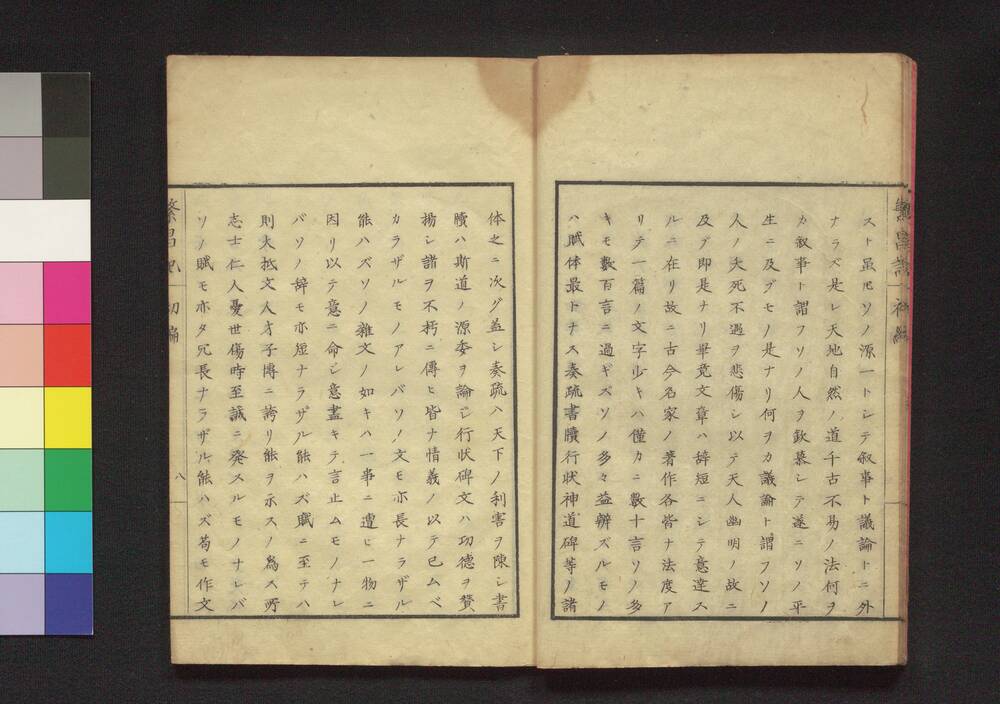 スト虽𪜈ソノ源一トシテ叙事ト議論トニ外
ナラズ是レ天地自然ノ道千古不易ノ法何ヲ
カ叙事ト謂フソノ人ヲ欽慕シテ遂ニソノ平
生ニ及ブモノ是ナリ何ヲカ議論ト謂フソノ
人ノ夭死不遇ヲ悲傷シ以テ天人幽明ノ故ニ
及ブ即是ナリ畢竟文章ハ辞短ニシテ意達ス
ルニ在リ故ニ古今名家ノ著作各皆ナ法度ア
リテ一篇ノ文字少キハ僅カニ數十言ソノ多
キモ數百言ニ過ギズソノ多々益辨ズルモノ
ハ賦体最トナス奏疏書牘行状神道碑等ノ諸
体之ニ次グ蓋シ奏疏ハ天下ノ利害ヲ陳シ書
牘ハ斯道ノ源委ヲ論シ行状碑文ハ功德ヲ賛
揚シ諸ヲ不朽ニ傳ヒ皆ナ情義ノ以テ已ムベ
カラザルモノアレバソノ文モ亦長ナラザル
能ハズソノ雜文ノ如キハ一事ニ遭ヒ一物ニ
因リ以テ意ニ命シ意盡キテ言止ムモノナレ
バソノ辞モ亦短ナラザル能ハズ賦ニ至テハ
則大抵文人才子博ニ誇リ能ヲ示スノ為ス所
志士仁人憂世傷時至誠ニ発スルモノナレバ
ソノ賦モ亦タ冗長ナラザル能ハズ苟モ作文
繁昌記 初編
八